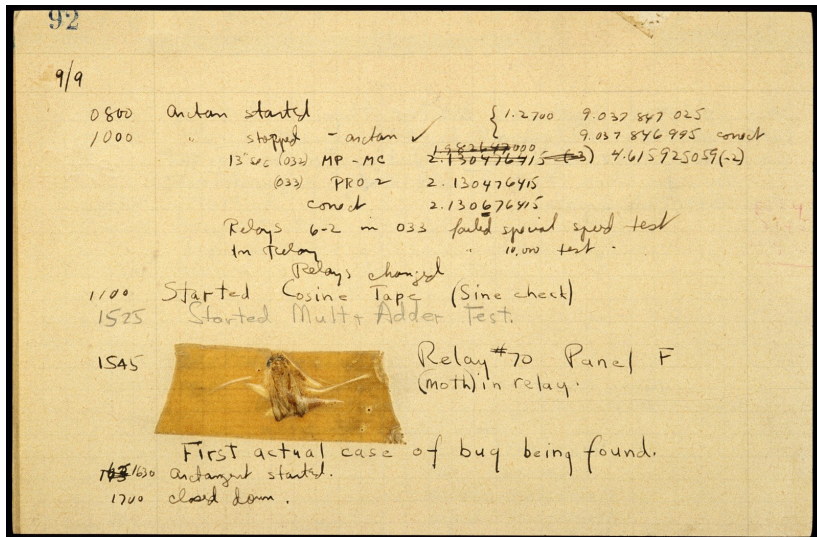 92
9/9
0800 arctan started { 1.2700 9.037 847 025
1000 " stopped - arctan ✓ 9.037 846 995 conect
13"uc (032) MP - MC 2.130476415 (-3) 4.615925059(-2)
(033) PRO 2 2.130476415
conect 2.130676415
Relays 6-2 in 033 failed special speed test
In Relay " 10,000 test .
Relays changed
1100 Started Cosine Tape (Sine check)
1525 Started Mult + Adder Test.
1545 Relay #70 Panel F
(moth) in relay.
First actual case of bug being found.
1630 arctangent started.
1700 closed down.